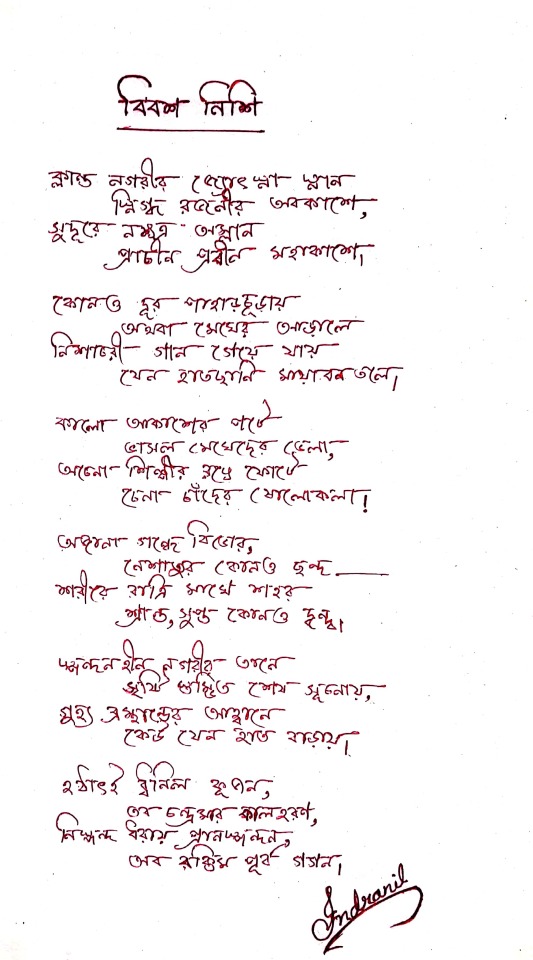 বিবশ নিশি
ক্লান্ত নগরীর জ্যোৎস্না স্নান
স্নিগ্ধ রজনীর অবকাশে,
সুদূরে নক্ষত্র অম্লান
প্রাচীন প্রবীন মহাকাশে।
কোনও দূর পাহাড়চূড়ায়
অথবা মেঘের আড়ালে
নিশাচরী গান গেয়ে যায়
যেন হাতছানি মায়াবনতলে।
কালো আকাশের পটে
ভাসল মেঘেদের ভেলা,
অচেনা শিল্পীর স্বপ্নে ফোটে
চেনা চাঁদের ষোলোকলা!
অজানা গন্ধে বিভোর,
নেশাতুর কোনও ছন্দ —
শরীরে রাত্রি মাখে শহর
শ্রান্ত, সুপ্ত কোনও দ্বন্দ্ব।
স্পন্দনহীন নগরীর তানে
সৃষ্টি স্তম্ভিত শেষ সূচনায়,
মুগ্ধ ব্রহ্মান্ডের আহ্বানে
কেউ যেন হাত বাড়ায়।
হঠাৎই দ্বিনিল কূজন,
তব চন্দ্রমার কালহরণ,
নিস্পন্দ ধরায় প্রানস্পন্দন,
অব রক্তিম পূর্ব গগন।
Indranil